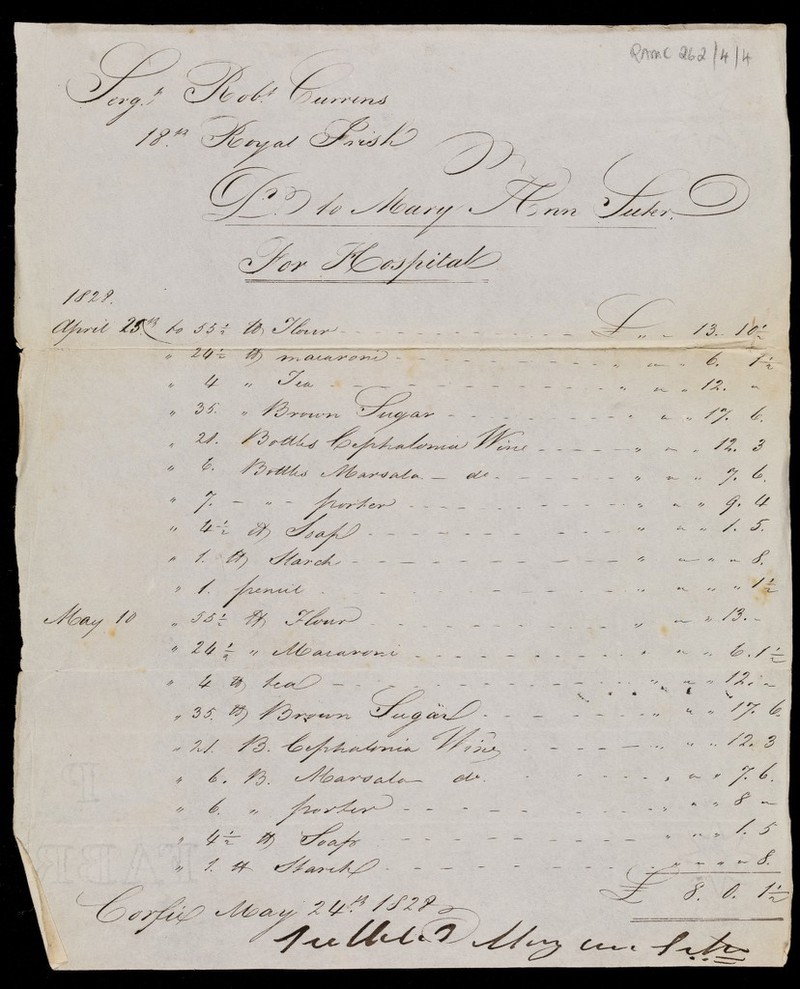 RAMC 262/4/4
Serg.t Rob.t Currens
18.th Royal Irish
D.r to Mary Ann Suter.
For Hospital
1828.
April 25th to 55½ lb Flour £ „ 13. 10½
„ 24½ lb macaroni „ „ 6. 1½
„ 4 „ Tea „ „ 12. „
„ 35. „ Brown Sugar „ „ 17. 6.
„ 21. Bottles Cephalonia Wine „ „ 12. 3
„ 6. Bottles Marsala — do „ „ 7. 6.
„ 7. - „ - porter „ „ 9. 4
„ 4½ lb Soap „ „ 1. 5.
„ 1. lb Starch „ „ „ 8.
„ 1. pencil „ „ „ 1½
May 10 „ 55½ lb Flour „ „ 13. -
„ 24½ „ Macaroni „ „ 6. 1½
„ 4 lb tea „ „ 12. „
„ 35. lb Brown Sugar „ „ 17. 6.
„ 21. B. Cephalonia Wine „ „ 12. 3
„ 6. B. Marsala do. „ „ 7. 6.
„ 6. „ porter „ „ 8 „
„ 4½ lb Soap „ „ 1. 5
„ 1. lb Starch „ „ „ 8.
£ 8. 0. 1½
Corfu May 24.th 1828
Mary Ann